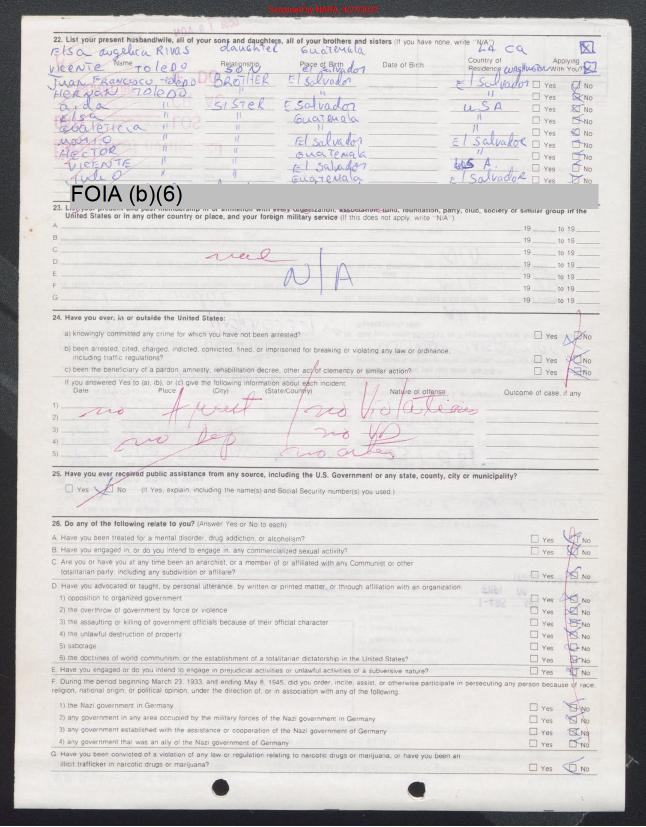 Screened by NARA, 4/27/2023
22. List your present husband/wife, all of your sons and daughters, all of your brothers and sisters (If you have none, write "N/A")
Name Relationship Place of Birth Date of Birth Country of Residence Applying With You?
Elsa angelica RIVAS daughter Guatemala LA Ca
VICENTE TOLEDO SON El Salvador Washington
Juan FRANCISCO TOLEDO BROTHER El Salvador El Salvador Yes No
HERNAN TOLEDO " " " Yes No
aida " SISTER El Salvador USA Yes No
Elsa " " Guatemala " Yes No
" " " Yes No
" " El Salvador El Salvador Yes No
HECTOR " " Guatemala " Yes No
VICENTE " El Salvador US A. Yes No
Julio " Guatemala El Salvador Yes No
FOIA (b)(6)
23. List your present and past membership in or affiliation with every organization, association, fund, foundation, party, club, society or similar group in the
United States or in any other country or place, and your foreign military service (If this does not apply, write "N/A")
A 19 to 19
B 19 to 19
C 19 to 19
D 19 to 19
N/A
E 19 to 19
F 19 to 19
G 19 to 19
24. Have you ever, in or outside the United States:
a) knowingly committed any crime for which you have not been arrested? Yes No
b) been arrested, cited, charged, indicted, convicted, fined, or imprisoned for breaking or violating any law or ordinance,
including traffic regulations? Yes No
c) been the beneficiary of a pardon, amnesty, rehabilitation decree, other act of clemency or similar action? Yes No
If you answered Yes to (a), (b), or (c) give the following information about each incident
Date Place (City) (State/Country) Nature of offense Outcome of case, if any
1) no Arrest / no Violations
2)
3) no Dep no
4)
5) no
25. Have you ever received public assistance from any source, including the U.S. Government or any state, county, city or municipality?
Yes No (If Yes, explain, including the name(s) and Social Security number(s) you used.)
26. Do any of the following relate to you? (Answer Yes or No to each)
A. Have you been treated for a mental disorder, drug addiction, or alcoholism? Yes No
B. Have you engaged in, or do you intend to engage in, any commercialized sexual activity? Yes No
C. Are you or have you at any time been an anarchist, or a member of or affiliated with any Communist or other
totalitarian party, including any subdivision or affiliate? Yes No
D. Have you advocated or taught, by personal utterance, by written or printed matter, or through affiliation with an organization:
1) opposition to organized government Yes No
2) the overthrow of government by force or violence Yes No
3) the assaulting or killing of government officials because of their official character Yes No
4) the unlawful destruction of property Yes No
5) sabotage Yes No
6) the doctrines of world communism, or the establishment of a totalitarian dictatorship in the United States? Yes No
E. Have you engaged or do you intend to engage in prejudicial activities or unlawful activities of a subversive nature? Yes No
F. During the period beginning March 23, 1933, and ending May 8, 1945, did you order, incite, assist, or otherwise participate in persecuting any person because of race,
religion, national origin, or political opinion, under the direction of, or in association with any of the following:
1) the Nazi government in Germany Yes No
2) any government in any area occupied by the military forces of the Nazi government in Germany Yes No
3) any government established with the assistance or cooperation of the Nazi government of Germany Yes No
4) any government that was an ally of the Nazi government of Germany Yes No
G. Have you been convicted of a violation of any law or regulation relating to narcotic drugs or marijuana, or have you been an
illicit trafficker in narcotic drugs or marijuana? Yes No